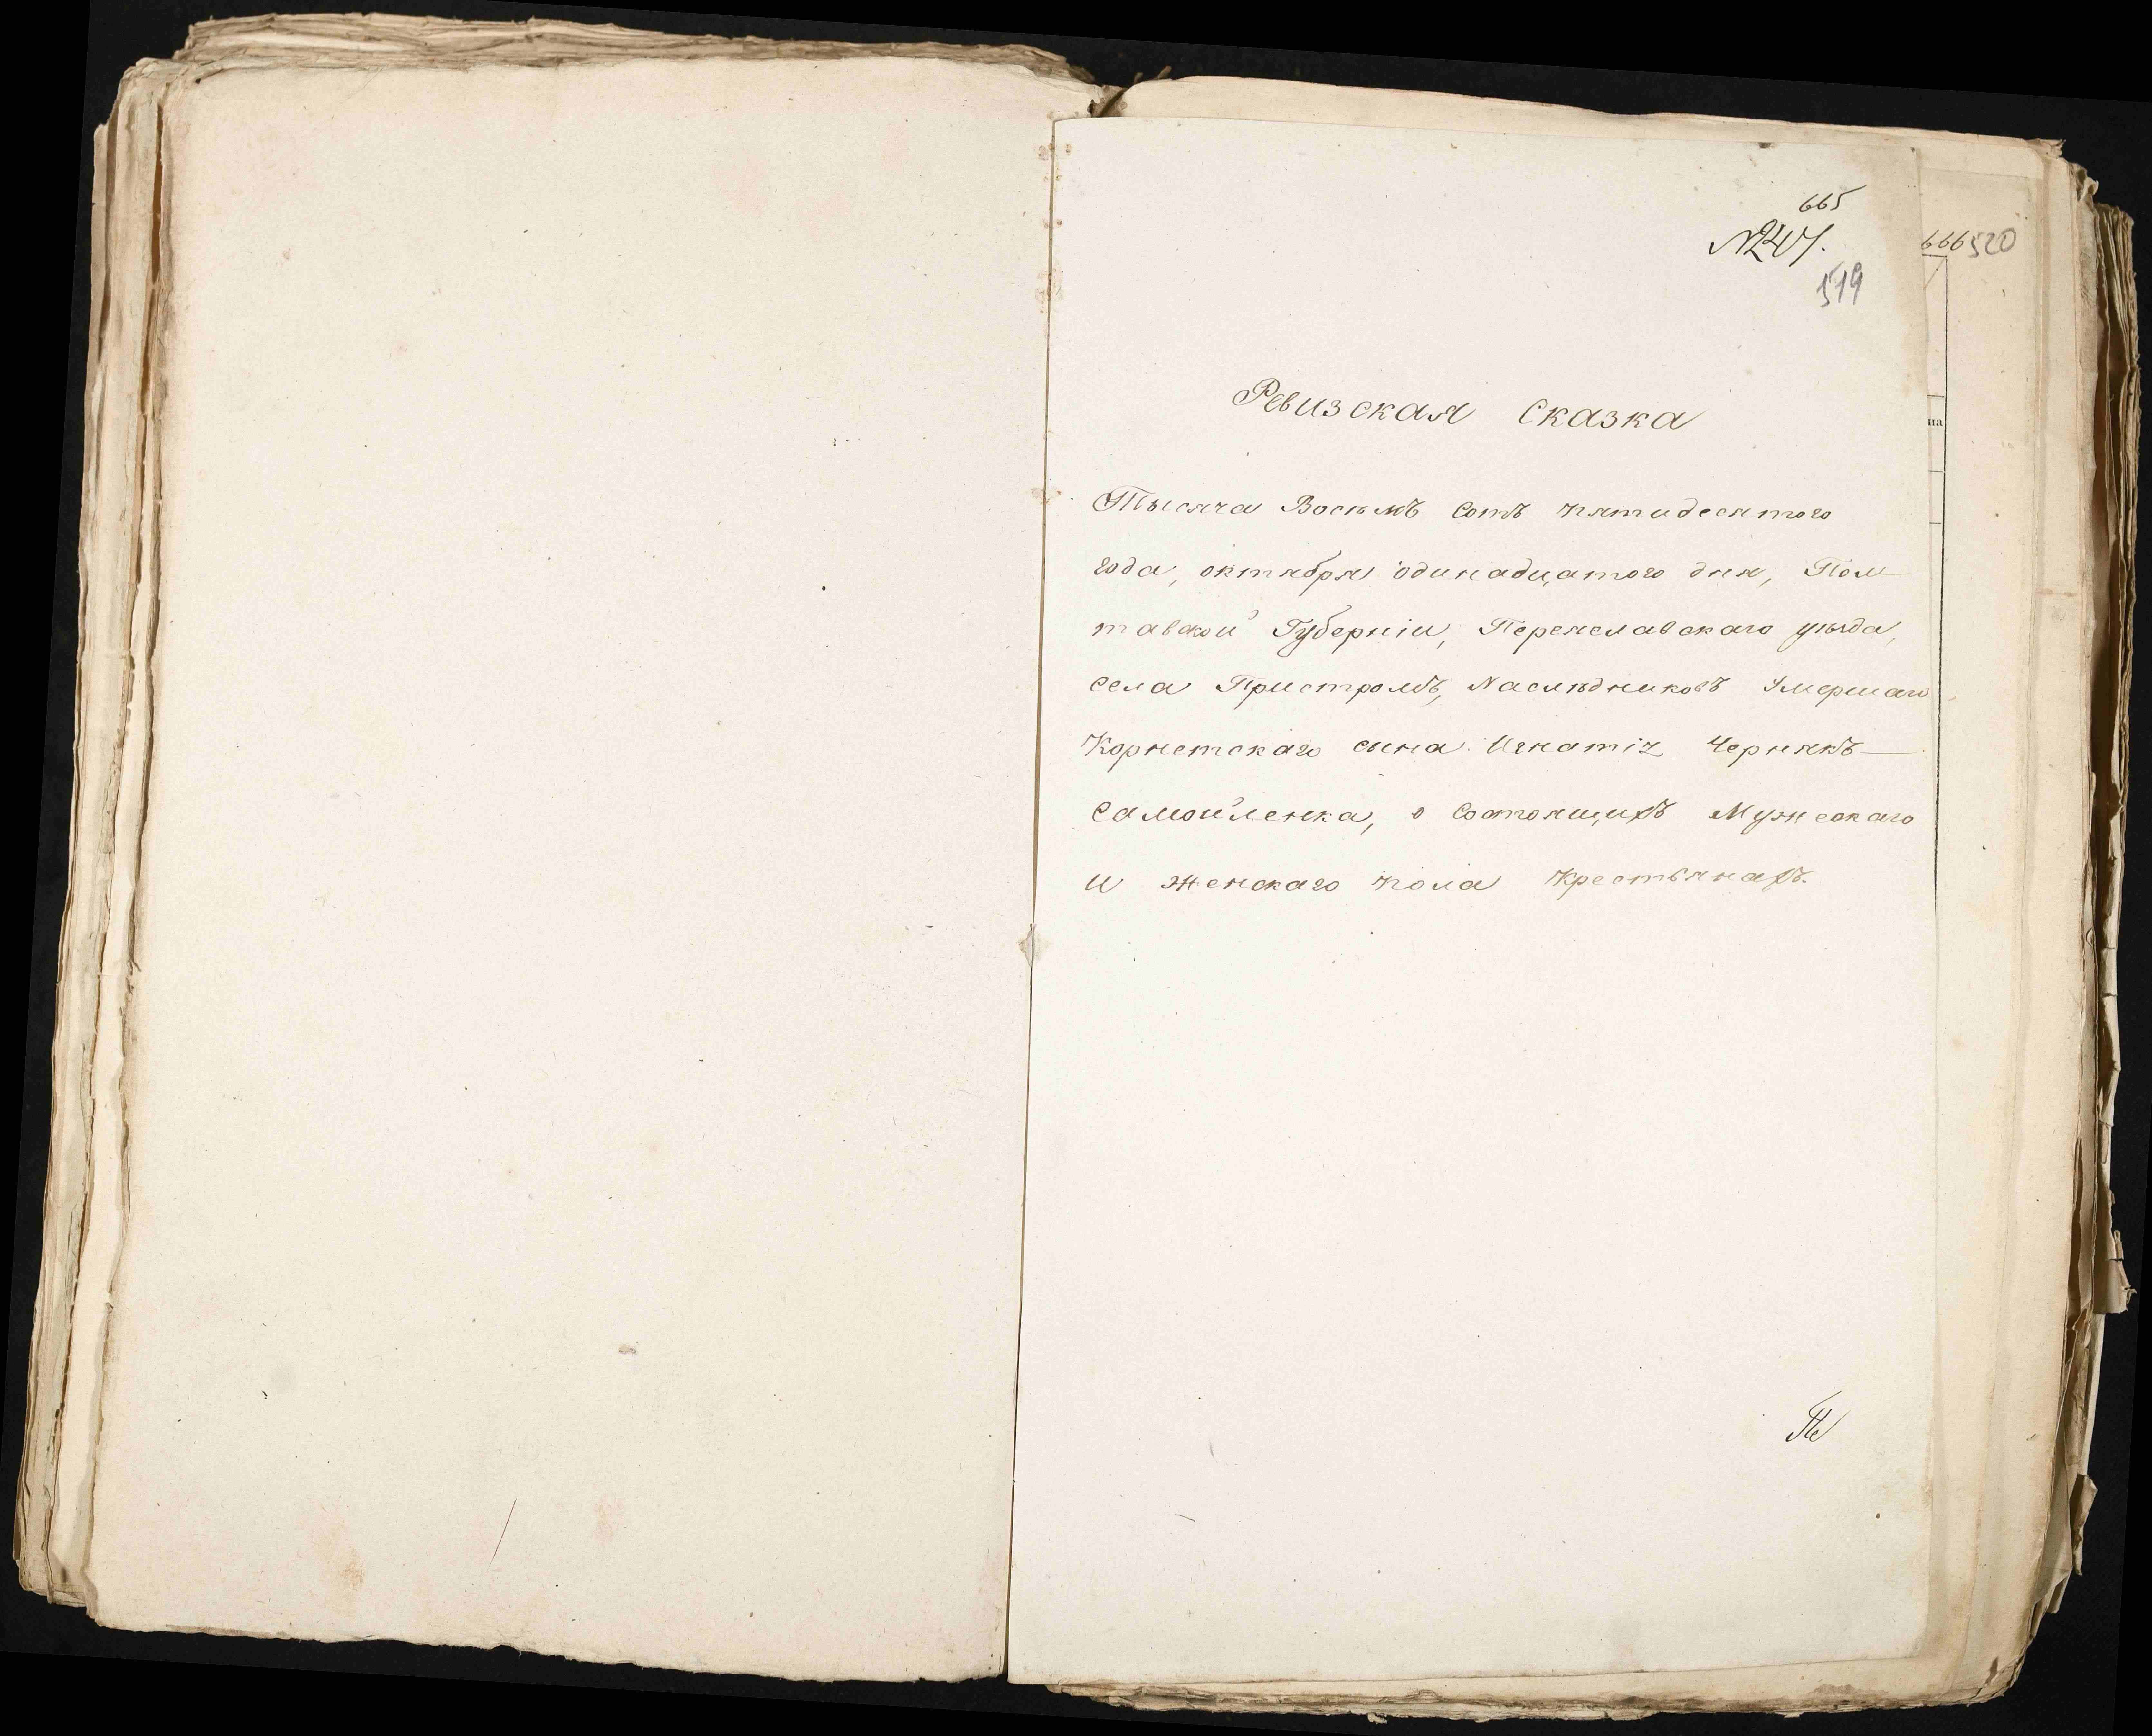 665
№247.
519
666 520
на
Ревизская сказка
Тысяча Восемъ сотъ пятидесятого
года, октября одинадцатого дня, Пол
тавской Губерніи, Переяславскаго уѣзда,
села Пристромъ, Наслѣдниковъ Умершаго
Корнетскаго сына Игнатія Чернякъ
Самойленка, о Состоящихъ Мужескаго
и женскаго пола крестьянахъ.